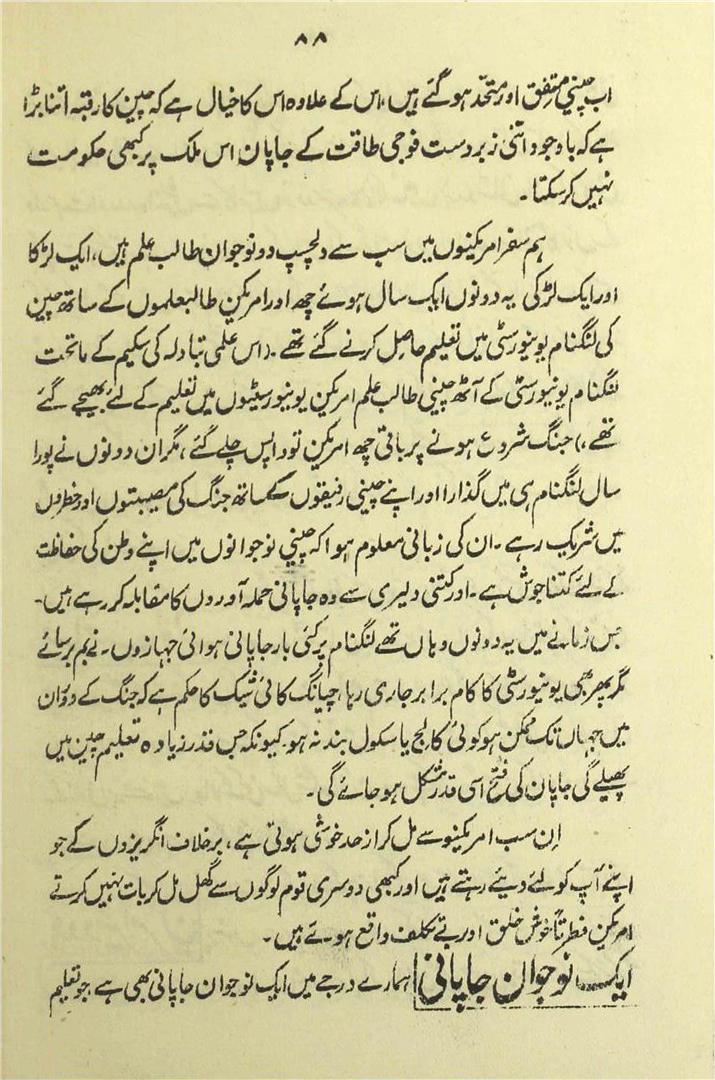 ۸۸
اب چینی متفق اور متحد ہو گئے ہیں، اس کے علاوہ اس کا خیال ہے کہ چین کا رقبہ اتنا بڑا
ہے کہ باوجود اتنی زبردست فوجی طاقت کے جاپان اس ملک پر کبھی حکومت
نہیں کر سکتا۔
ہم سفر امریکنوں میں سب سے دلچسپ دو نوجوان طالب علم ہیں، ایک لڑکا
اور ایک لڑکی یہ دونوں ایک سال ہوئے چھ اور امریکن طالبعلموں کے ساتھ چین
کی لنگنام یونیورسٹی میں تعلیم حاصل کرنے گئے تھے۔ (اس علمی تبادلہ کی سکیم کے ماتحت
لنگنام یونیورسٹی کے آٹھ چینی طالب علم امریکن یونیورسیٹیوں میں تعلیم کے لئے بھیجے گئے
تھے۔) جنگ شروع ہونے پر باقی چھ امریکن تو واپس چلے گئے، مگر ان دونوں نے پورا
سال لنگنام ہی میں گذارا اور اپنے چینی رفیقوں کے ساتھ جنگ کی مصیبتوں اور خطروں
میں شریک رہے۔ ان کی زبانی معلوم ہوا کہ چینی نوجوانوں میں اپنے وطن کی حفاظت
کے لئے کتنا جوش ہے۔ اور کتنی دلیری سے وہ جاپانی حملہ آوروں کا مقابلہ کر رہے ہیں۔
جس زمانے میں یہ دونوں وہاں تھے لنگنام پر کئی بار جاپانی ہوائی جہازوں۔ نے بم برسائے
مگر پھر بھی یونیورسٹی کا کام برابر جاری رہا، چیانگ کائی شیک کا حکم ہے کہ جنگ کے دوران
میں جہاں تک ممکن ہو کوئی کالج یا سکول بند نہ ہو۔ کیونکہ جس قدر زیادہ تعلیم چین میں
پھیلے گی جاپان کی فتح اسی قدر مشکل ہو جائے گی۔
ان سب امریکینو سے مل کر از حد خوشی ہوتی ہے، برخلاف انگریزوں کے جو
اپنے آپ کو لئے دیئے رہتے ہیں اور کبھی دوسری قوم لوگوں سے گھل مل کر بات نہیں کرتے
امریکین فطرتاً خوش خلق اور بے تکلف واقع ہوئے ہیں۔
ایک نوجوان جاپانی ہمارے درجے میں ایک نوجوان جاپانی بھی ہے، جو تعلیم